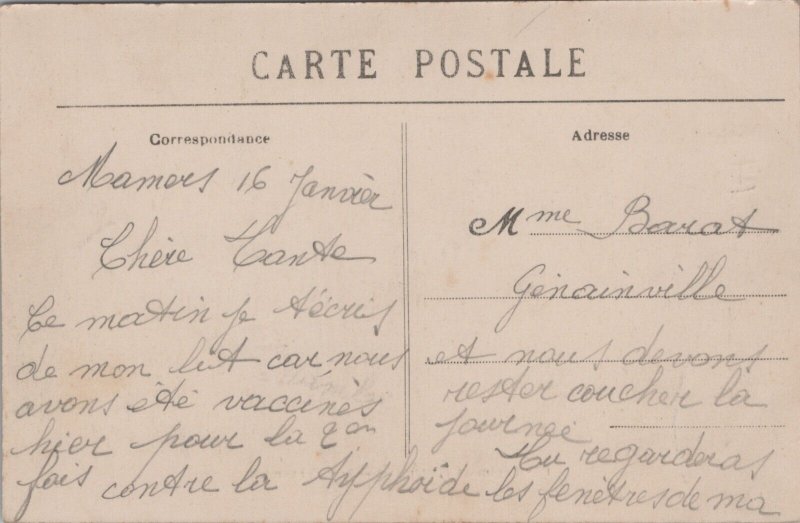 CARTE POSTALE
Correspondance
Mamers 16 Janvier
Chère Tante
Ce matin je t'écris
de mon lit car nous
avons été vaccinés
hier pour la 2em
fois contre la typhoïde
Adresse
Mme Barat
Génainville
et nous devons
rester coucher la
journée
Tu regarderas
les fenêtres de ma